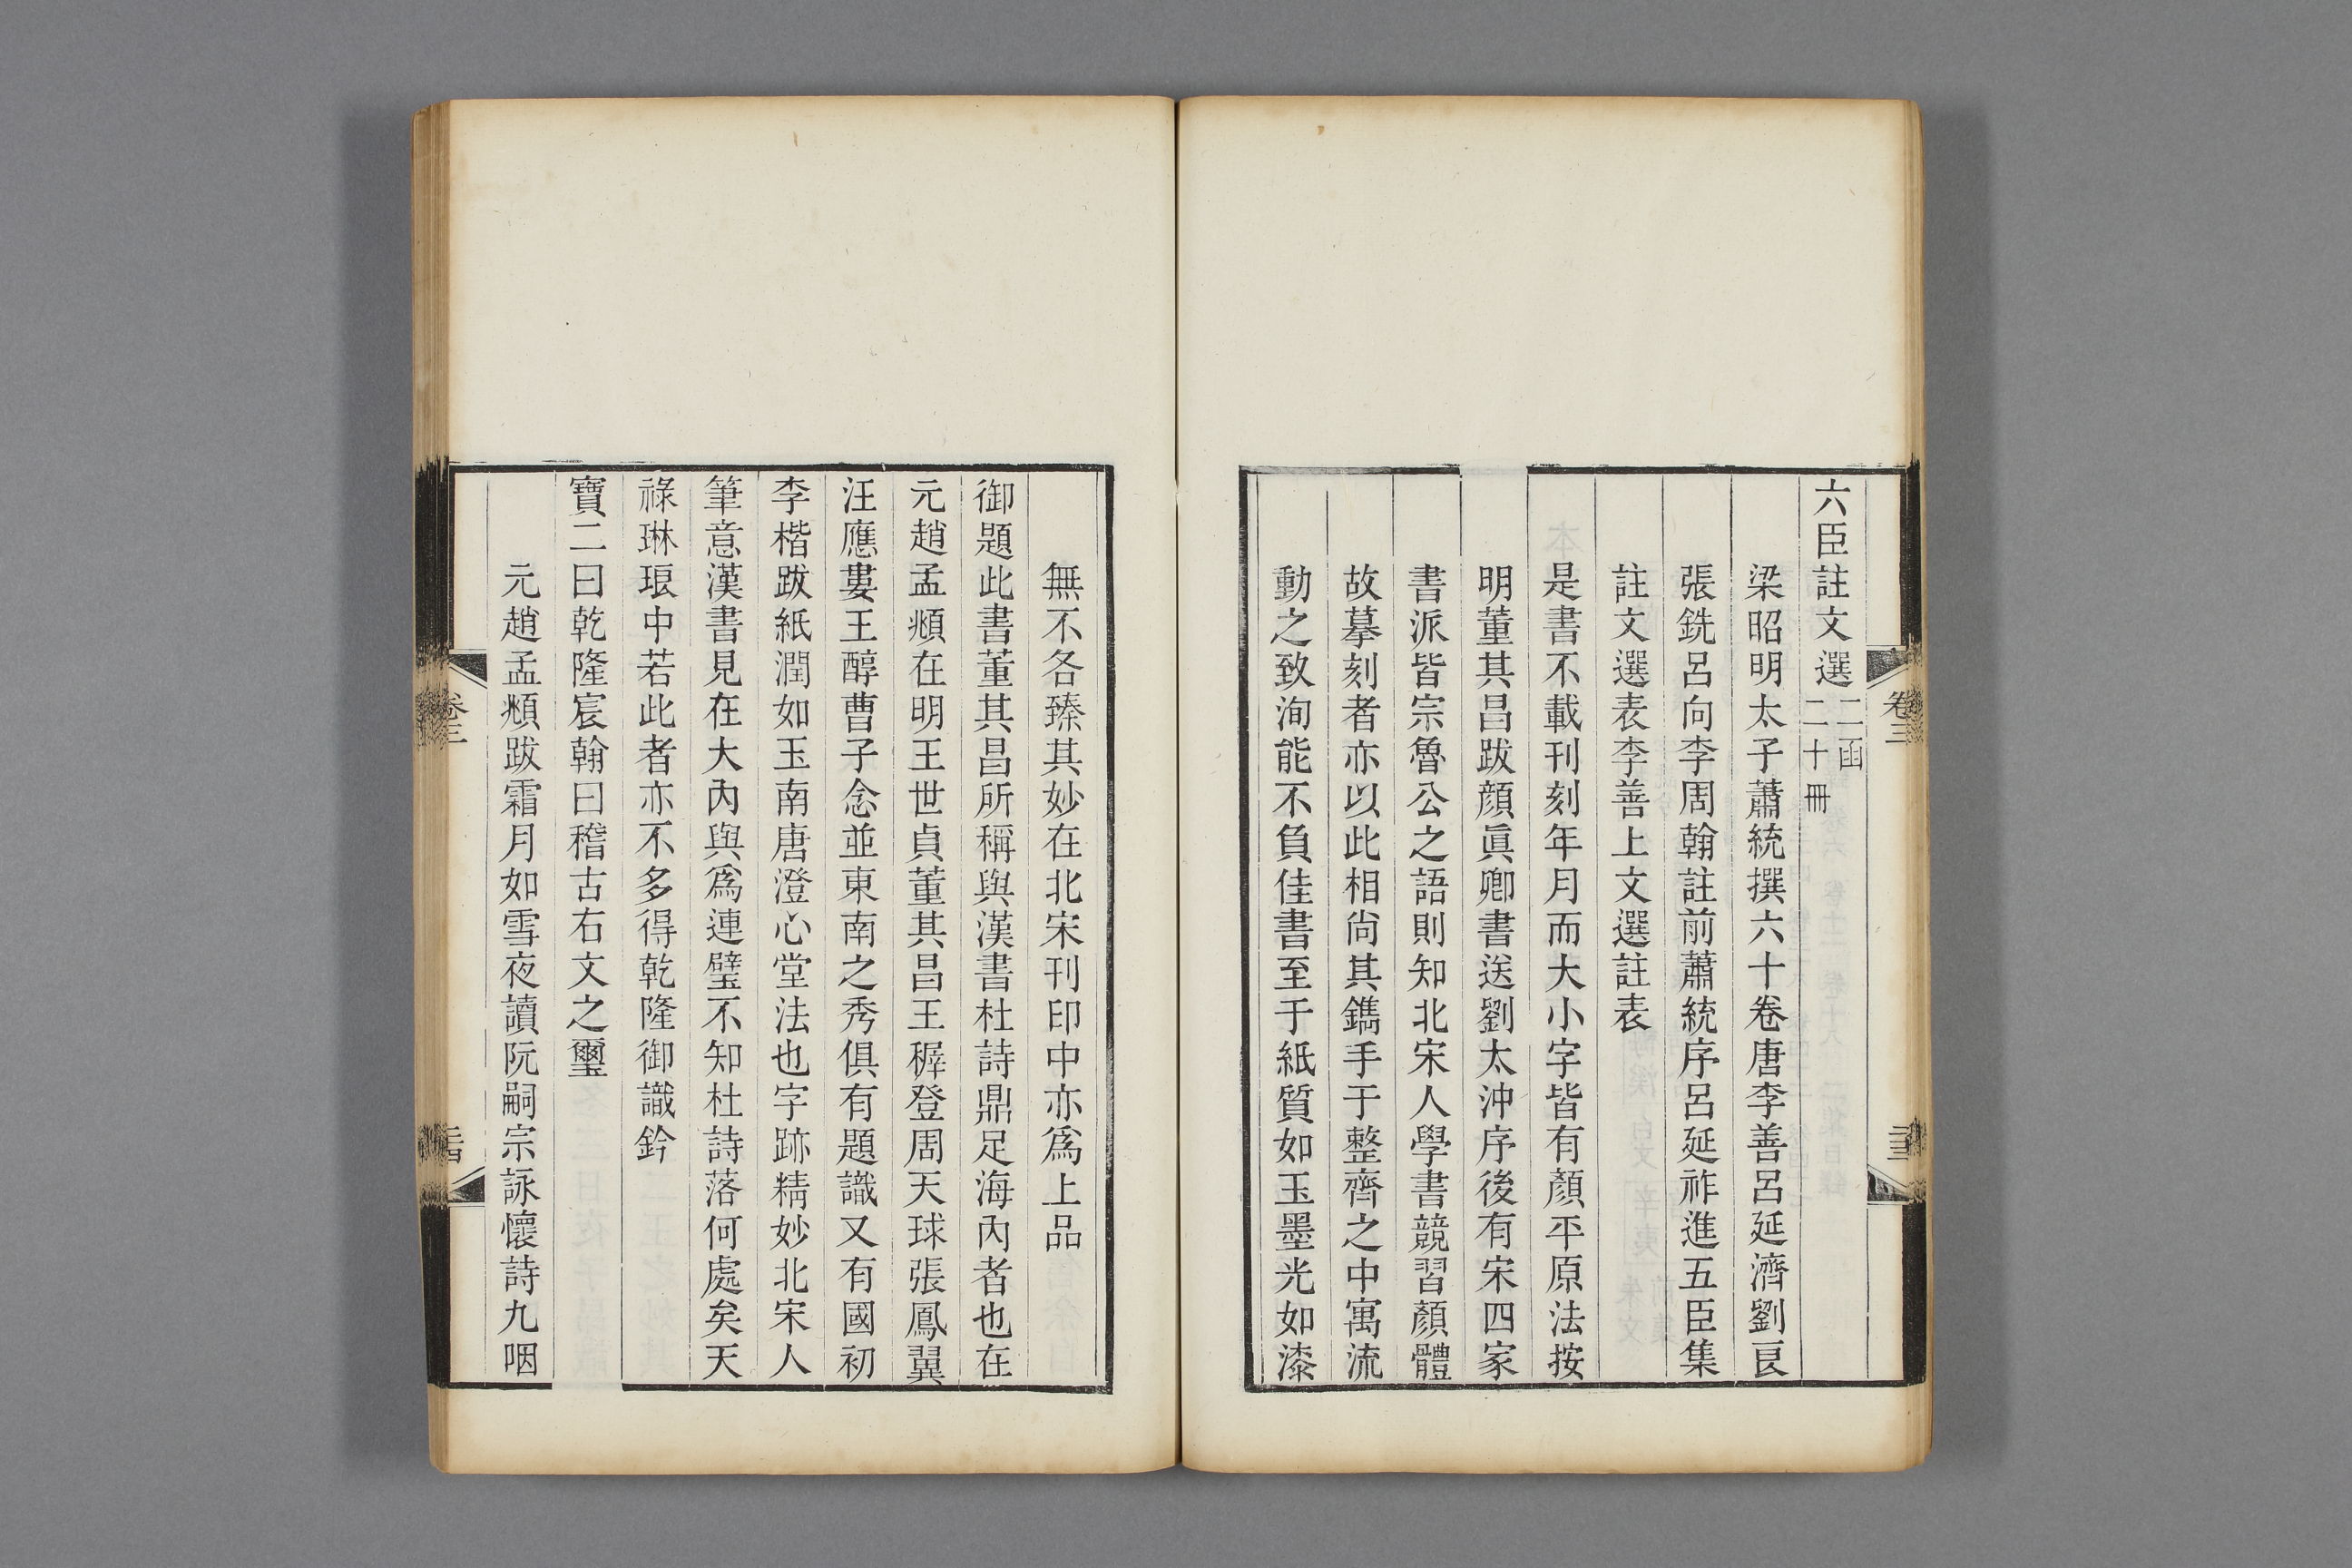 六臣註文選二函二十冊
梁昭明太子蕭統撰六十卷唐李善呂延濟劉良
張銑呂向李周翰註前蕭統序呂延祚進五臣集
註文選表李善上文選註表
是書不載刊刻年月而大小字皆有顏平原法按
明董其昌跋顔眞卿書送劉太沖序後有宋四家
書派皆宗魯公之語則知北宋人學書競習顏體
故摹刻者亦以此相尚其鐫手于整齊之中寓流
動之致洵能不負佳書至于紙質如玉墨光如漆
卷三
二十三
無不各臻其妙在北宋刊印中亦爲上品
御題此書董其昌所稱與漢書杜詩鼎足海內者也在
元趙孟頫在明王世貞董其昌王穉登周天球張鳳翼
汪應婁王醇曹子念並東南之秀俱有題識又有國初
李楷跋紙潤如玉南唐澄心堂法也字跡精妙北宋人
筆意漢書見在大內與爲連璧不知杜詩落何處矣天
祿琳琅中若此者亦不多得乾隆御識鈐
寶二曰乾隆宸翰曰稽古右文之璽
元趙孟頫跋霜月如雪夜讀阮嗣宗詠懷詩九咽
卷三